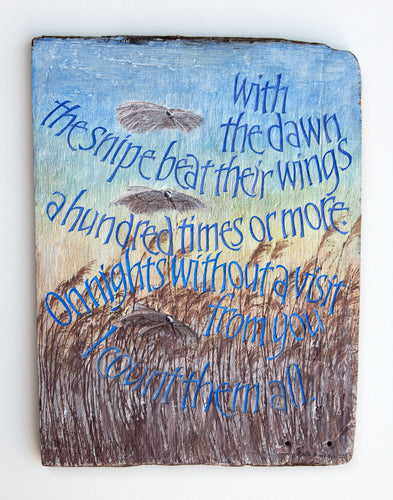 with
the dawn
the snipe beat their wings
a hundred times or more
On nights without a visit
from you
I count them all.